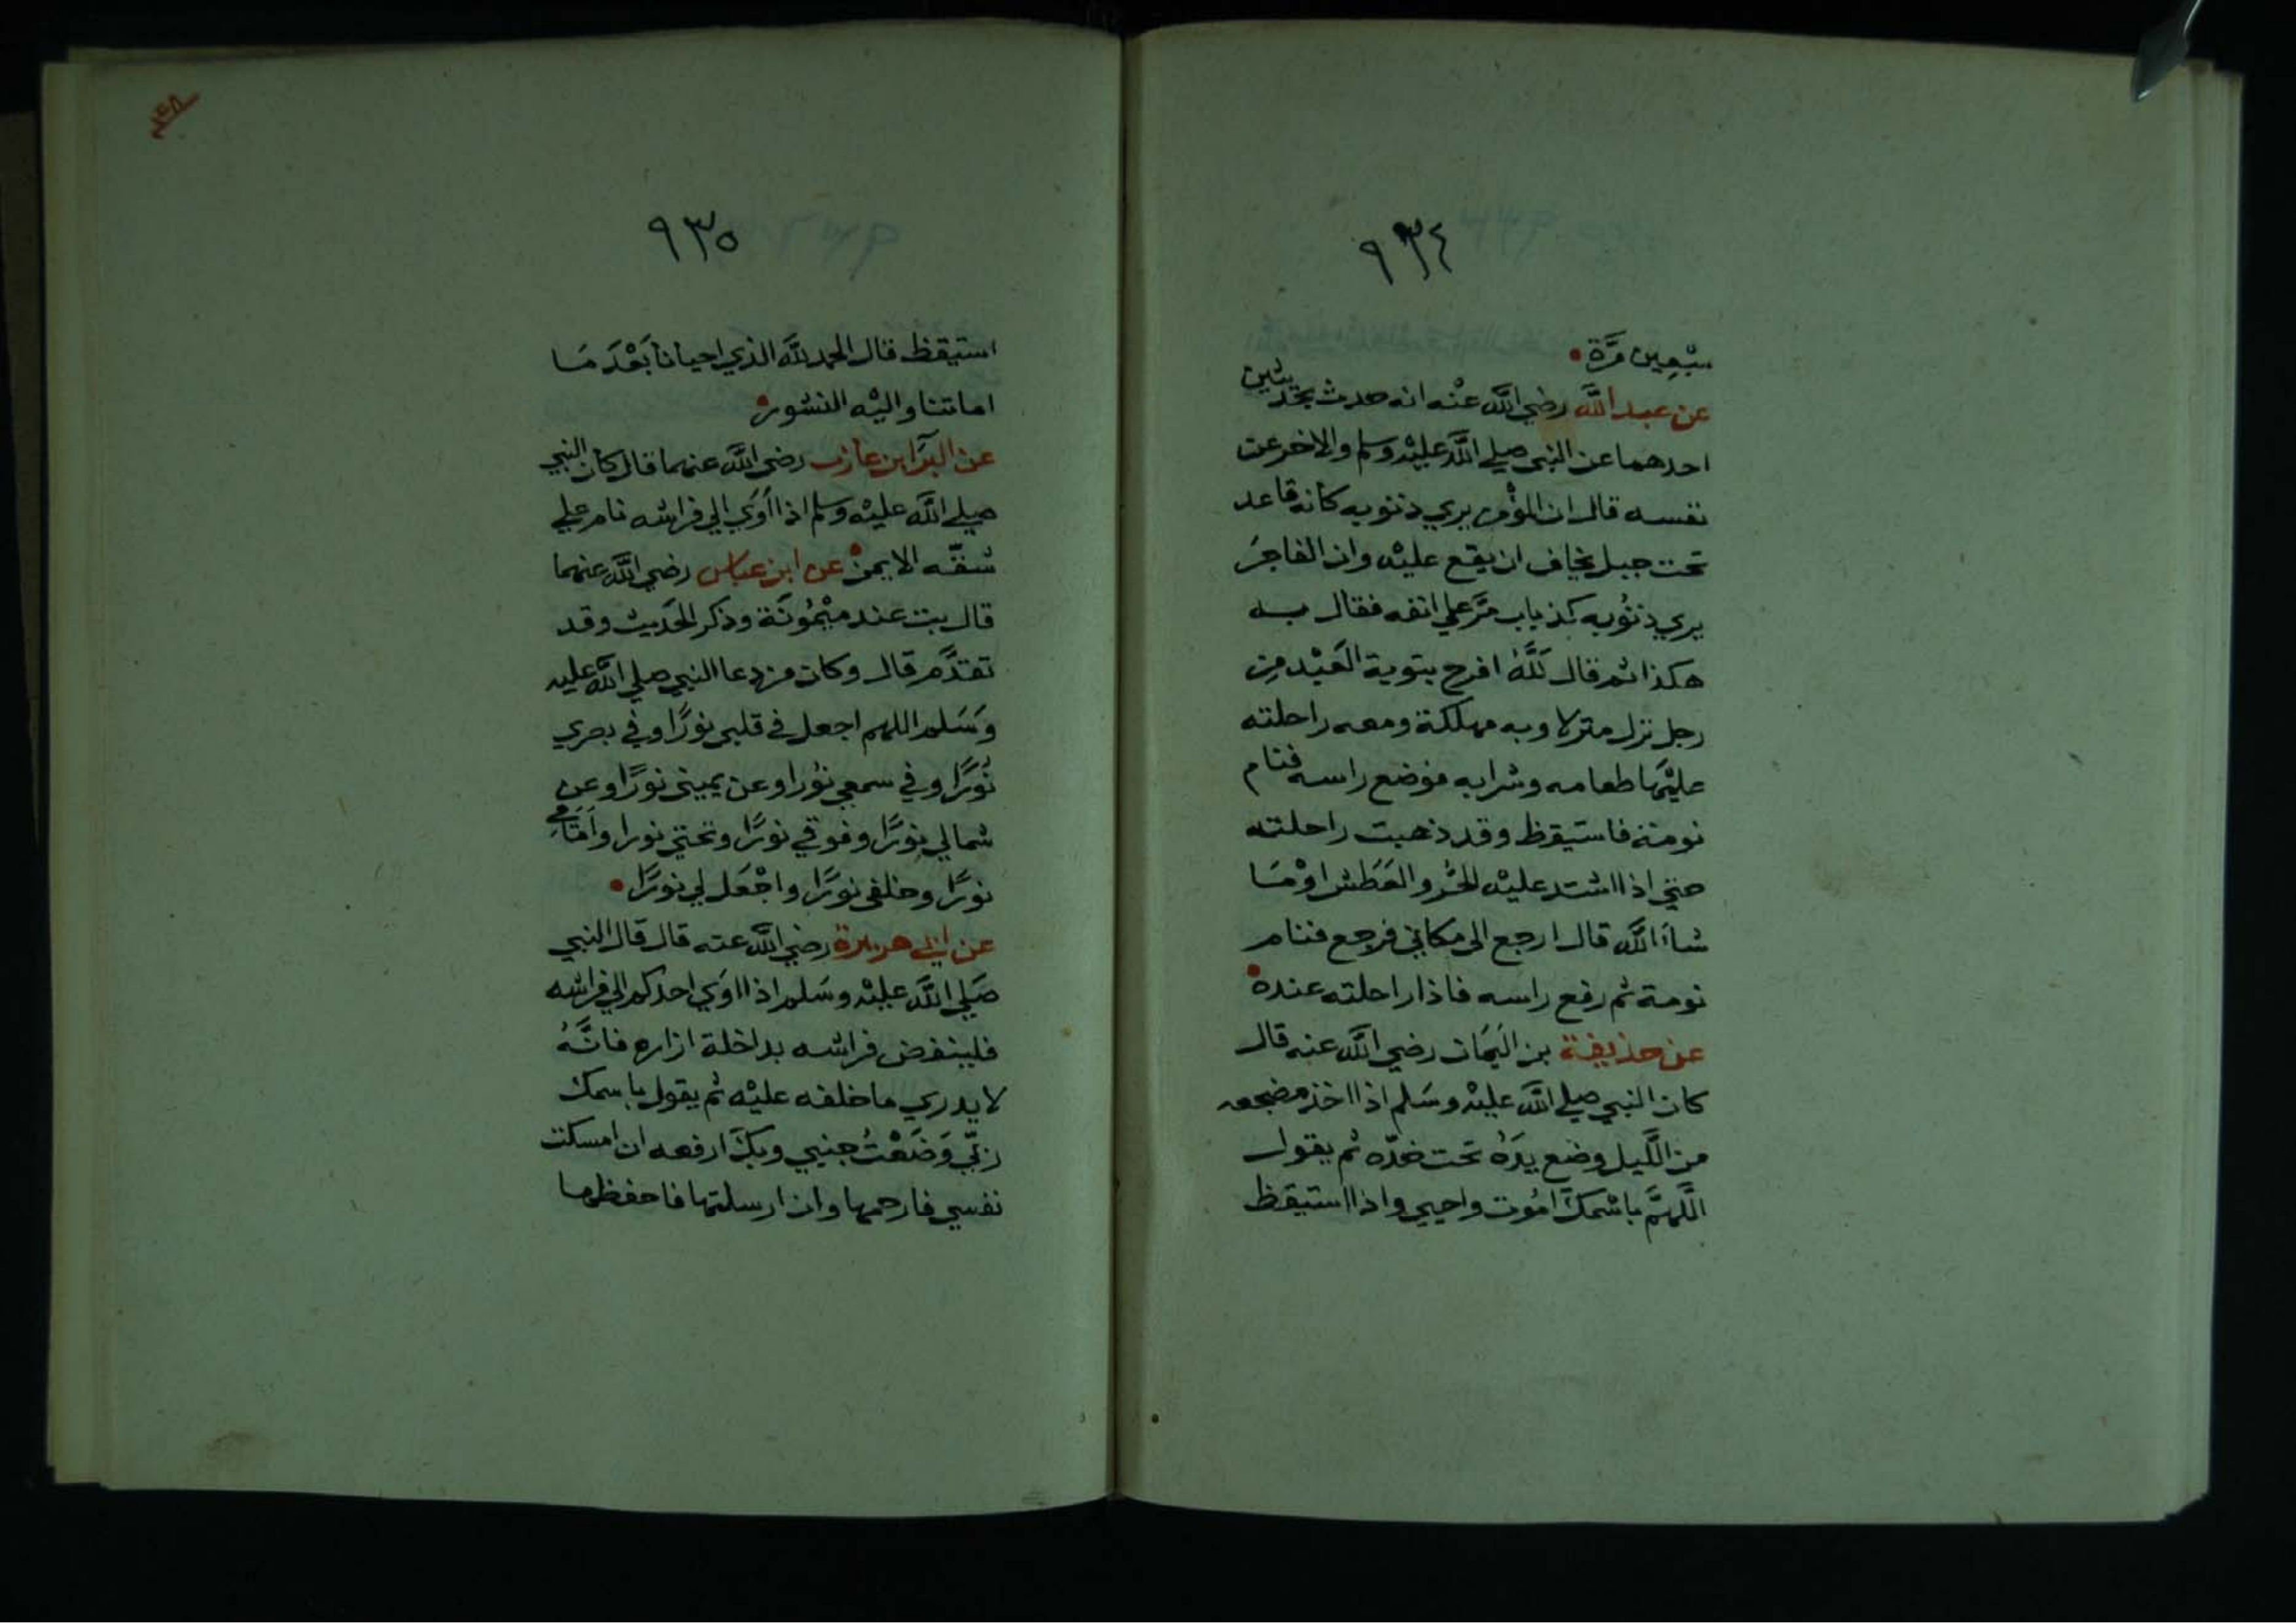 ٩٣٤
سَبْعِين مَرَّة
عن عبد الله رضي الله عنْه انه حدث بحَديثين
احدهما عن النبي صلي الله عليْه وسلم والاخر عن
نفسه قال ان المؤمن يري ذنوبه كانه قاعد
تحت جبل يخاف ان يقع عليْه وان الفاجرَ
يري ذنوُبه كذباب مَرَّ علي انفه فقال بـه
هكذا ثم قال للَّهُ افرح بتوبة العَبْد مِن
رجل نزل منزلا وبه مهلكة ومعه راحلته
عليْها طعامه وشرابه فوضع راسه فنام
نومة فاستيقظ وقد ذهبت راحلته
حتي اذا اشتد عليْه الحَرّ والعَطَش اوْ مَا
شاَءَ الله قال ارجع الى مكاني فرجع فنام
نومة ثم رفع راسه فاذا راحلته عنده
عن حذيفة بن اليَمَان رضي الله عنه قال
كان النبي صلي الله عليْه وسَلم اذا اخذ مضجعه
من اللَّيل وضع يدَهُ تحت خدّه ثم يقول
اللَّهمَّ باسْمكَ امُوت واحيي واذا استيقظ
٩٣٥
استيقظ قال الحمد للَّه الذي احيانا بَعْدَ مَا
اماتنا واليْه النشور
عن البَرَآ ابن عازب رضي الله عنهما قال كان النبي
صلي الله عليْه وسلم اذا أَوَي الي فراشه نام علي
شقّه الايمن عن ابن عباس رضي الله عنهما
قال بت عند ميْمُونَة وذكر الحَديث وقد
تقدَّم قال وكان من دعا النبي صلي الله عليه
وَسَلم اللهم اجعل في قلبي نورًا وفي بصري
نُورًا وفي سمعي نوُرا وعن يميني نورًا وعن
شمالي نورًا وفوقي نورًا وتحتي نورا واَمَامي
نورًا وخلفي نورًا واجْعَل لي نورًا
عن ابي هريرة رضي الله عنه قال قال النبي
صَلي الله عليْه وسَلم اذا اوَي احدكم الي فراشه
فلينفض فراشه بداخلة ازاره فانَّهُ
لا يدري ما خلفه عليْه ثم يقول باسمك
ربِّي وَضَعْتُ جنبي وبكَ ارفعه ان امسكت
نفسي فارحمها وان ارسلتها فاحفظها